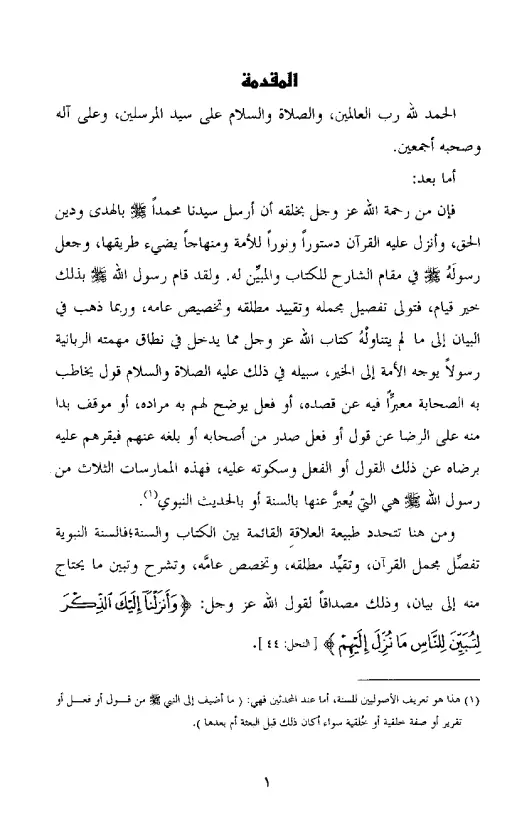 المقدمة
الحمد لله رب العالمين، والصلاة والسلام على سيد المرسلين، وعلى آله
وصحبه أجمعين.
أما بعد:
فإن من رحمة الله عز وجل بخلقه أن أرسل سيدنا محمداً ﷺ بالهدى ودين
الحق، وأنزل عليه القرآن دستوراً ونوراً للأمة ومنهاجاً يضيء طريقها، وجعل
رسولَهُ ﷺ في مقام الشارح للكتاب والمبيِّن له. ولقد قام رسول الله ﷺ بذلك
خير قيام، فتولى تفصيل مجمله وتقييد مطلقه وتخصيص عامه، وربما ذهب في
البيان إلى ما لم يتناولْهُ كتاب الله عز وجل مما يدخل في نطاق مهمته الربانية
رسولاً يوجه الأمة إلى الخير، سبيله في ذلك عليه الصلاة والسلام قول يخاطب
به الصحابة معبِّراً فيه عن قصده، أو فعل يوضح لهم به مراده، أو موقف بدا
منه على الرضا عن قول أو فعل صدر من أصحابه أو بلغه عنهم فيقرهم عليه
برضاه عن ذلك القول أو الفعل وسكوته عليه، فهذه الممارسات الثلاث من
رسول الله ﷺ هي التي يُعبرَّ عنها بالسنة أو بالحديث النبوي(١).
ومن هنا تتحدد طبيعة العلاقة القائمة بين الكتاب والسنة؛فالسنة النبوية
تفصِّل مجمل القرآن، وتقيِّد مطلقه، وتخصص عامَّه، وتشرح وتبين ما يحتاج
منه إلى بيان، وذلك مصداقاً لقول الله عز وجل: ﴿وَأَنزَلْنَآ إِلَيْكَ ٱلذِّكْرَ
لِتُبَيِّنَ لِلنَّاسِ مَا نُزِّلَ إِلَيْهِمْ﴾ [النحل: ٤٤].
(١) هذا هو تعريف الأصوليين للسنة، أما عند المحدثين فهي: ( ما أضيف إلى النبي ﷺ من قول أو فعل أو
تقرير أو صفة خلقية أو خُلقية سواء أكان ذلك قبل البعثة أم بعدها ).
١